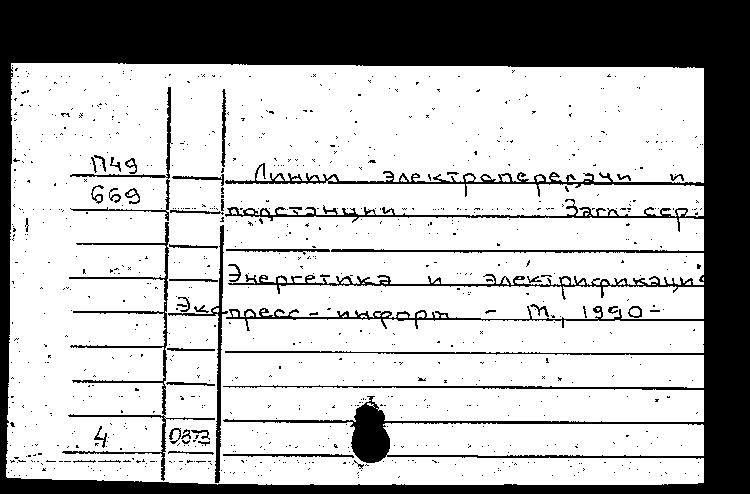 П49
Линии электропередачи и
669
подстанции Загл. сер.
Энергетика и электрификация
Экспресс-информ - М., 1990-
4 0873